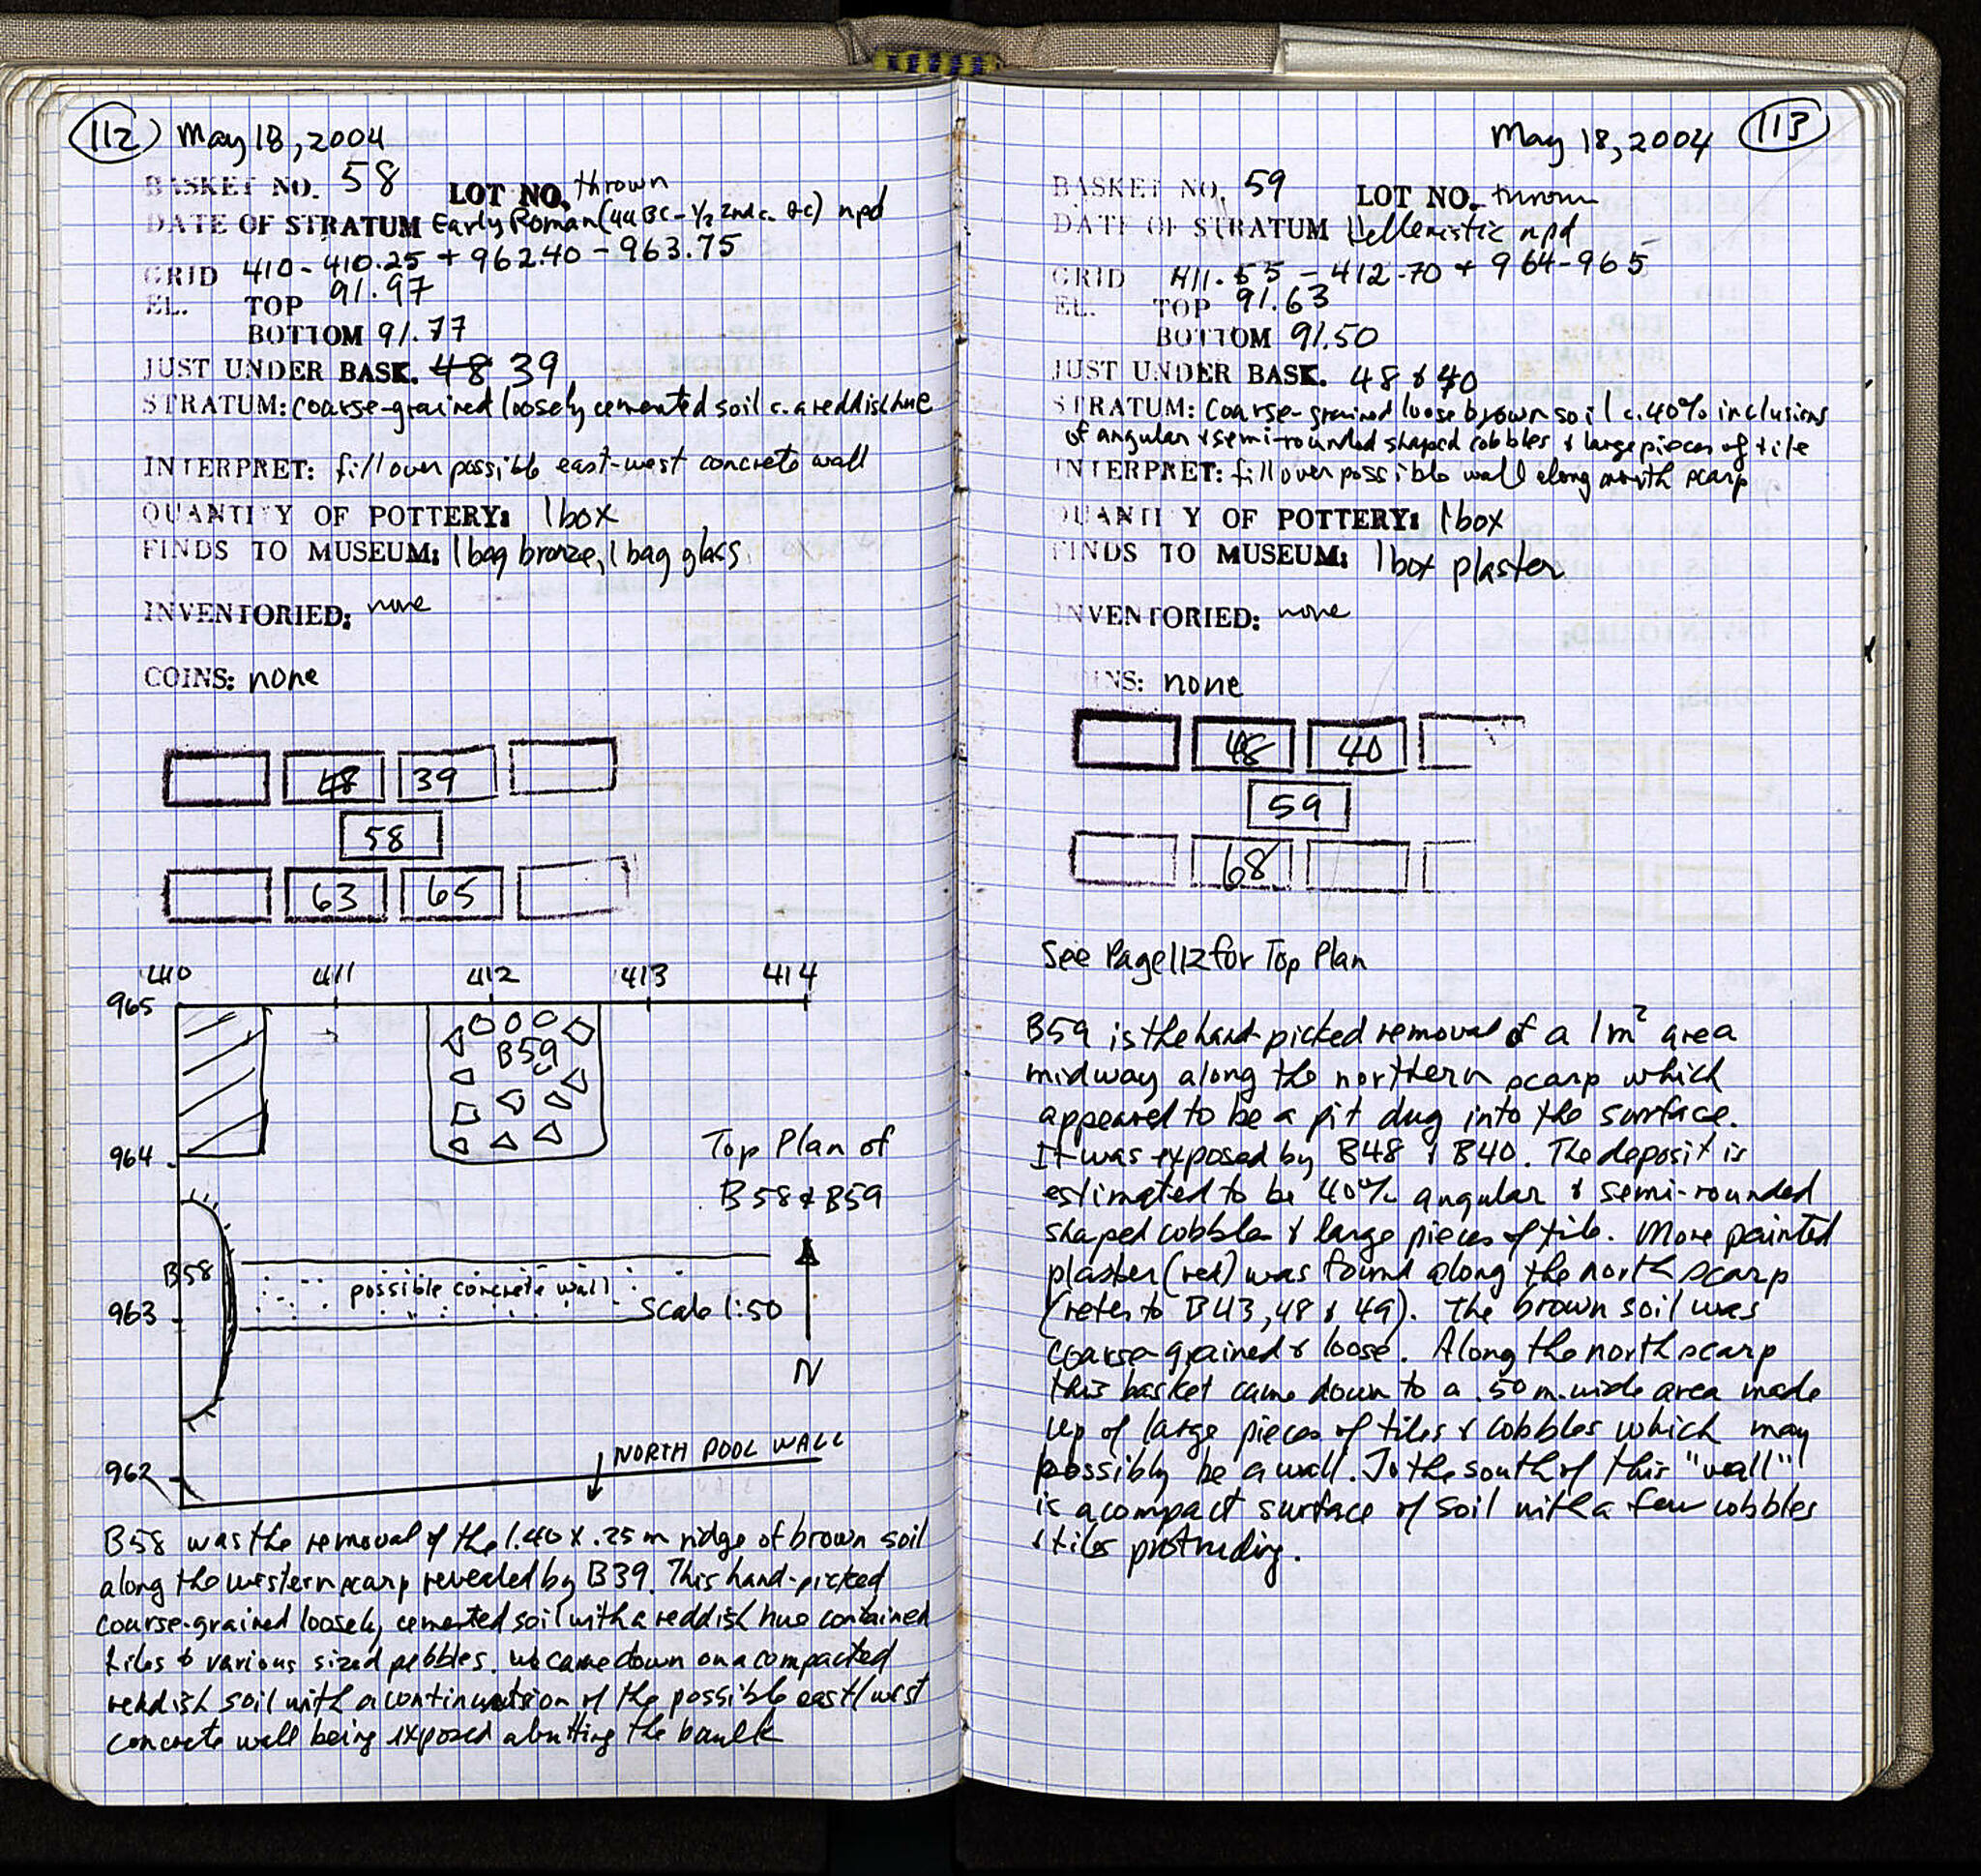 112 May 18, 2004
BASKET NO. 58 LOT NO. thrown
DATE OF STRATUM Early Roman (44 BC - 1/2 2nd c. AC) npd
GRID 410 - 410.25 + 962.40 - 963.75
EL. TOP 91.97
BOTTOM 91.77
JUST UNDER BASK. 48 39
STRATUM: coarse-grained loosely cemented soil c. a reddish hue
INTERPRET: fill over possible east-west concrete wall
QUANTITY OF POTTERY: 1 box
FINDS TO MUSEUM: 1 bag bronze, 1 bag glass
INVENTORIED: none
COINS: none
48 39
58
63 65
410 411 412 413 414
965
B59
964
Top Plan of
B58 & B59
B58
possible concrete wall
963
Scale 1:50
N
NORTH POOL WALL
962
B58 was the removal of the 1.40 x .25 m ridge of brown soil
along the western scarp revealed by B39. This hand-picked
coarse-grained loosely cemented soil with a reddish hue contained
tiles & various sized pebbles. We came down on a compacted
reddish soil with a continuation of the possible east/west
concrete wall being exposed abutting the baulk
May 18, 2004 113
BASKET NO. 59 LOT NO. thrown
DATE OF STRATUM Hellenistic npd
GRID 411.55 - 412.70 + 964-965
EL. TOP 91.63
BOTTOM 91.50
JUST UNDER BASK. 48 & 40
STRATUM: coarse-grained loose brown soil c. 40% inclusions
of angular & semi-rounded shaped cobbles & large pieces of tile
INTERPRET: fill over possible wall along north scarp
QUANTITY OF POTTERY: 1 box
FINDS TO MUSEUM: 1 box plaster
INVENTORIED: none
COINS: none
48 40
59
68
See Page 112 for Top Plan
B59 is the hand-picked removal of a 1m² area
midway along the northern scarp which
appeared to be a pit dug into the surface.
It was exposed by B48 & B40. The deposit is
estimated to be 40% angular & semi-rounded
shaped cobbles & large pieces of tile. More painted
plaster (red) was found along the north scarp
(refer to B43, 48 & 49). The brown soil was
coarse-grained & loose. Along the north scarp
this basket came down to a .50 m. wide area made
up of large pieces of tiles & cobbles which may
possibly be a wall. To the south of this "wall"
is a compact surface of soil with a few cobbles
& tiles protruding.